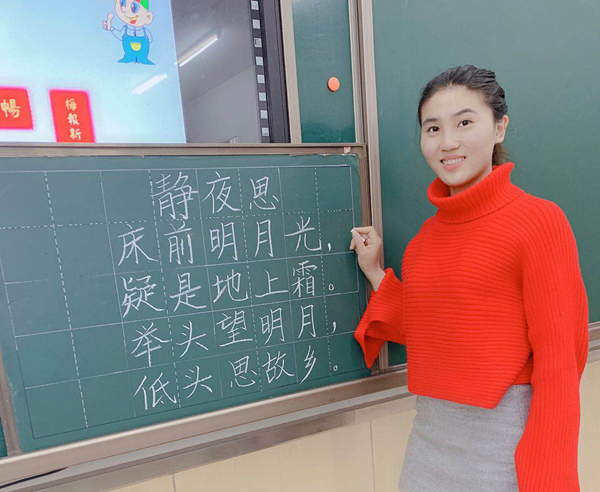 暢
梅报新
静夜思
床前明月光，
疑是地上霜。
举头望明月，
低头思故乡。